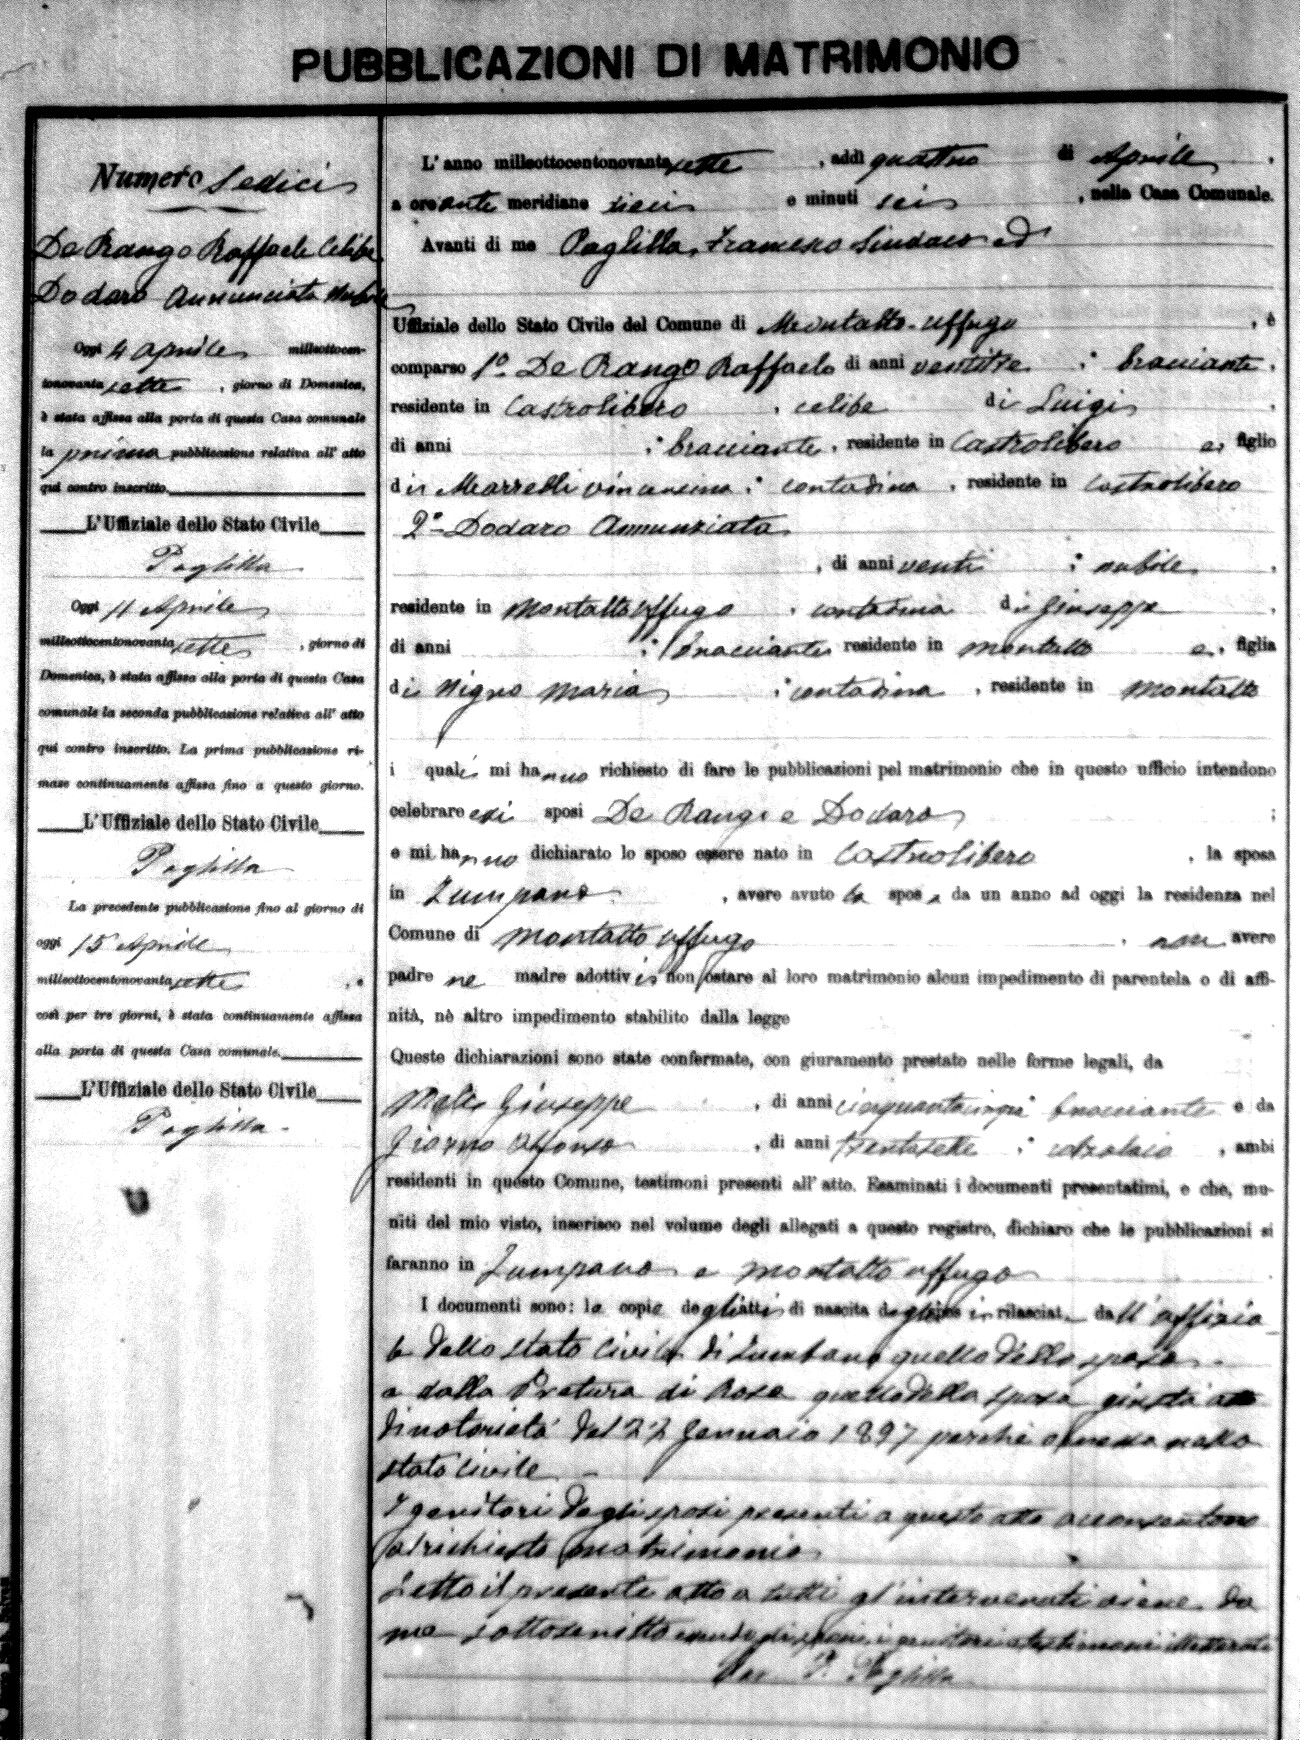 PUBBLICAZIONI DI MATRIMONIO
Numero Sedici
De Rango Raffaele Celibe
Dodaro Annunciata Nubile
Oggi 4 Aprile milleottocen-
tonovanta sette, giorno di Domenica,
è stata affissa alla porta di questa Casa comunale
la prima pubblicazione relativa all' atto
qui contro inscritto.
L'Uffiziale dello Stato Civile
Paglilla
Oggi 11 Aprile
milleottocentonovanta sette, giorno di
Domenica, è stata affissa alla porta di questa Casa
comunale la seconda pubblicazione relativa all' atto
qui contro inscritto. La prima pubblicazione ri-
mase continuamente affissa fino a questo giorno.
L'Uffiziale dello Stato Civile
Paglilla
La precedente pubblicazione fino al giorno di
oggi 15 Aprile
milleottocentonovanta sette, e
così per tre giorni, è stata continuamente affissa
alla porta di questa Casa comunale.
L'Uffiziale dello Stato Civile
Paglilla
L' anno milleottocentonovanta sette, addì quattro di Aprile,
a ore anti meridiane dieci e minuti sei, nella Casa Comunale.
Avanti di me Paglilla Francesco Sindaco ed
Uffiziale dello Stato Civile del Comune di Montalto Uffugo, è
comparso 1° De Rango Raffaele di anni ventitre; bracciante,
residente in Castrolibero, celibe di Luigi,
di anni ; bracciante, residente in Castrolibero e, figlio
di Marrelli Vincenzina; contadina, residente in Castrolibero
2° Dodaro Annunziata
, di anni venti; nubile,
residente in Montalto Uffugo, contadina di Giuseppe,
di anni ; bracciante residente in Montalto e, figlia
di Nigro Maria; contadina, residente in Montalto
i quali mi hanno richiesto di fare le pubblicazioni pel matrimonio che in questo ufficio intendono
celebrare essi sposi De Rango e Dodaro;
e mi hanno dichiarato lo sposo essere nato in Castrolibero, la sposa
in Zumpano, avere avuto la sposa da un anno ad oggi la residenza nel
Comune di Montalto Uffugo, non avere
padre ne madre adottivi, non ostare al loro matrimonio alcun impedimento di parentela o di affi-
nità, nè altro impedimento stabilito dalla legge
Queste dichiarazioni sono state confermate, con giuramento prestato nelle forme legali, da
Giuseppe, di anni cinquantacinque bracciante e da
Giorno Alfonso, di anni trentasette; ambi
residenti in questo Comune, testimoni presenti all' atto. Esaminati i documenti presentatimi, e che, mu-
niti del mio visto, inserisco nel volume degli allegati a questo registro, dichiaro che le pubblicazioni si
faranno in Zumpano e Montalto Uffugo
I documenti sono: le copie degli atti di nascita degli sposi rilasciat dall' uffizia
le dello stato Civile di Zumpano quello dello sposo
e dalla Pretura di Rose quello della sposa giusta atto
di notorietà del 22 Gennaio 1897 perchè omessa nello
stato civile
I genitori degli sposi presenti a questo atto acconsentono
al richiesto matrimonio
Letto il presente atto a tutti gl' intervenuti viene da
me sottoscritto essendo gli sposi, i genitori e testimoni illetterati
P. Paglilla